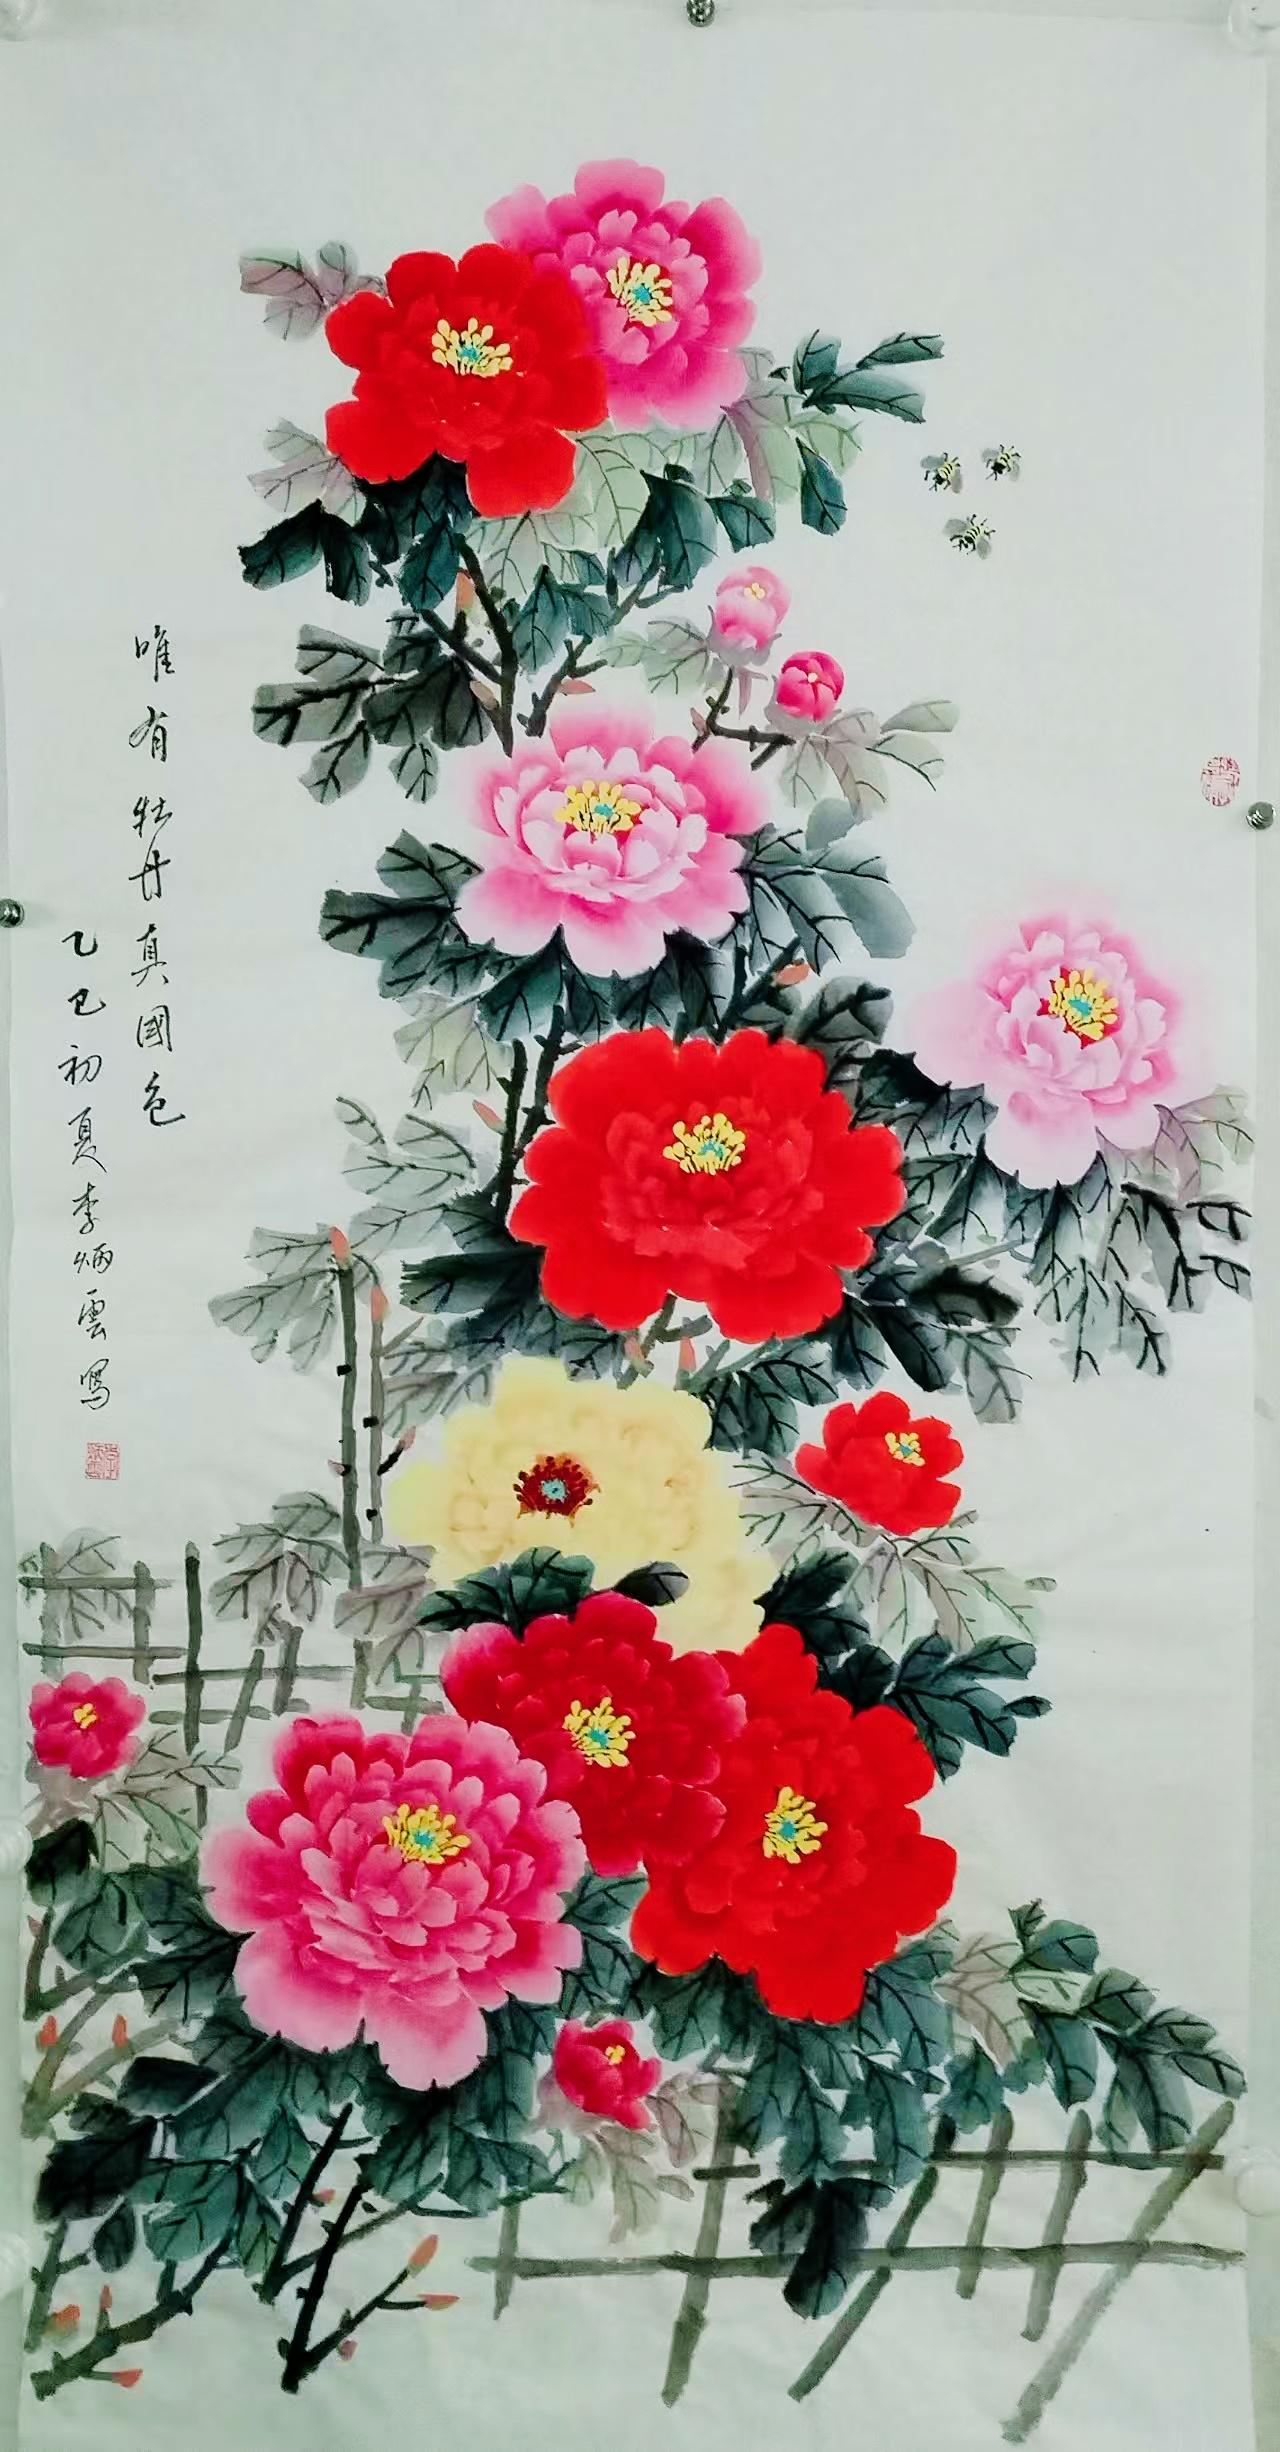 唯有牡丹真國色
乙巳初夏李炳雲寫